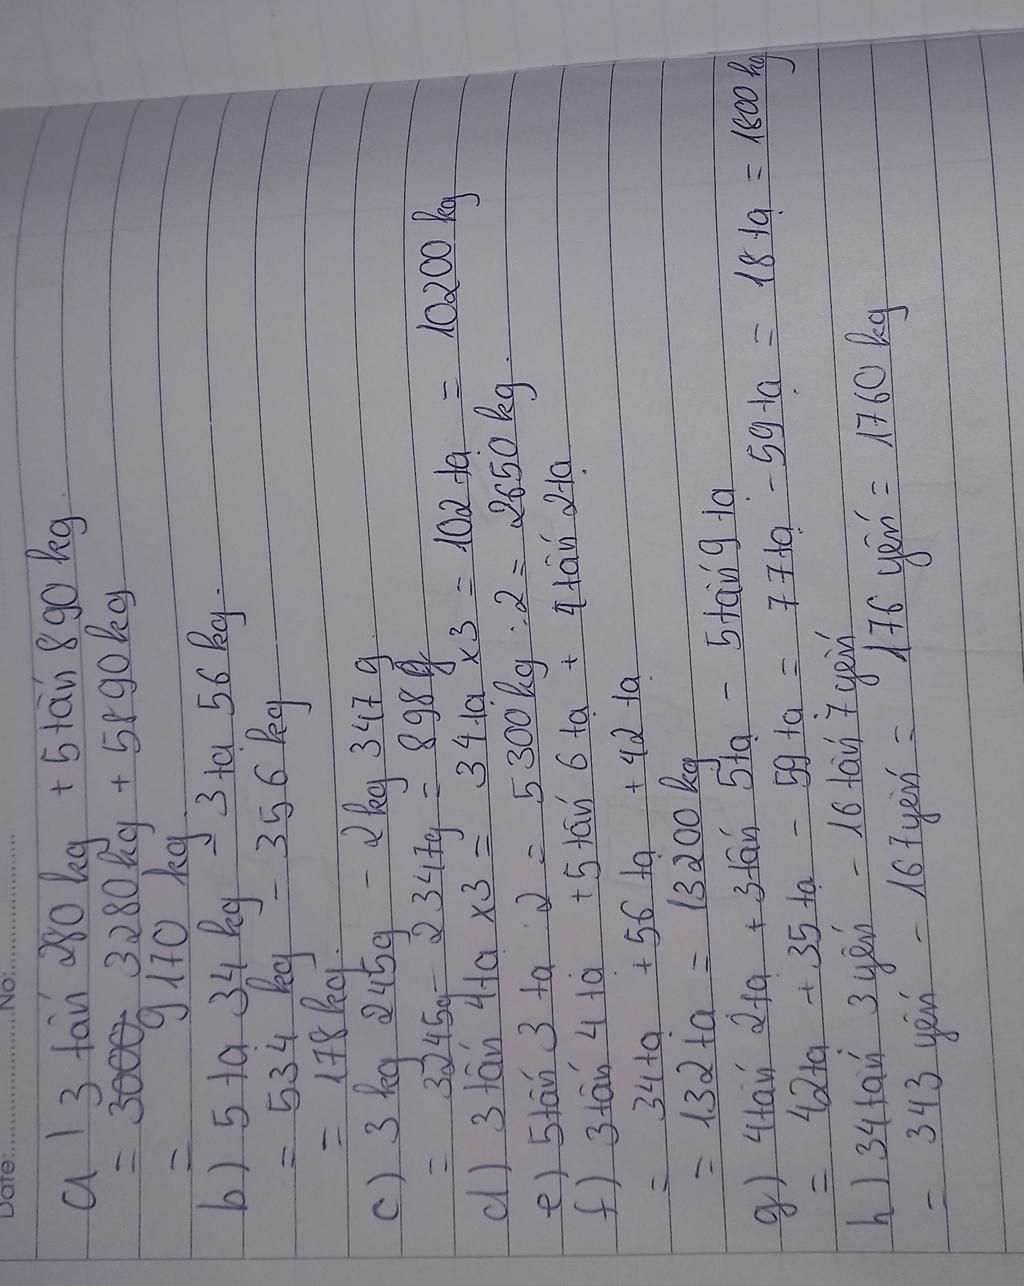 Date:..............No:..............
a) 3 tấn 280 kg + 5 tấn 890 kg
= 3000 3280 kg + 5890 kg
= 9170 kg
b) 5 tạ 34 kg - 3 tạ 56 kg.
= 534 kg - 356 kg
= 178 kg.
c) 3 kg 245g - 2 kg 347 g
= 3245g - 2347g = 898 g
d) 3 tấn 4 tạ x3 = 34 tạ x3 = 102 tạ = 10200 kg
e) 5 tấn 3 tạ : 2 = 5300 kg : 2 = 2650 kg.
f) 3 tấn 4 tạ + 5 tấn 6 tạ + 4 tấn 2 tạ
= 34 tạ + 56 tạ + 42 tạ
= 132 tạ = 13200 kg
g) 4 tấn 2 tạ + 3 tấn 5 tạ - 5 tấn 9 tạ
= 42 tạ + 35 tạ - 59 tạ = 77 tạ - 59 tạ = 18 tạ = 1800 kg
h) 34 tấn 3 yến - 16 tấn 7 yến
= 343 yến - 167 yến = 176 yến = 1760 kg